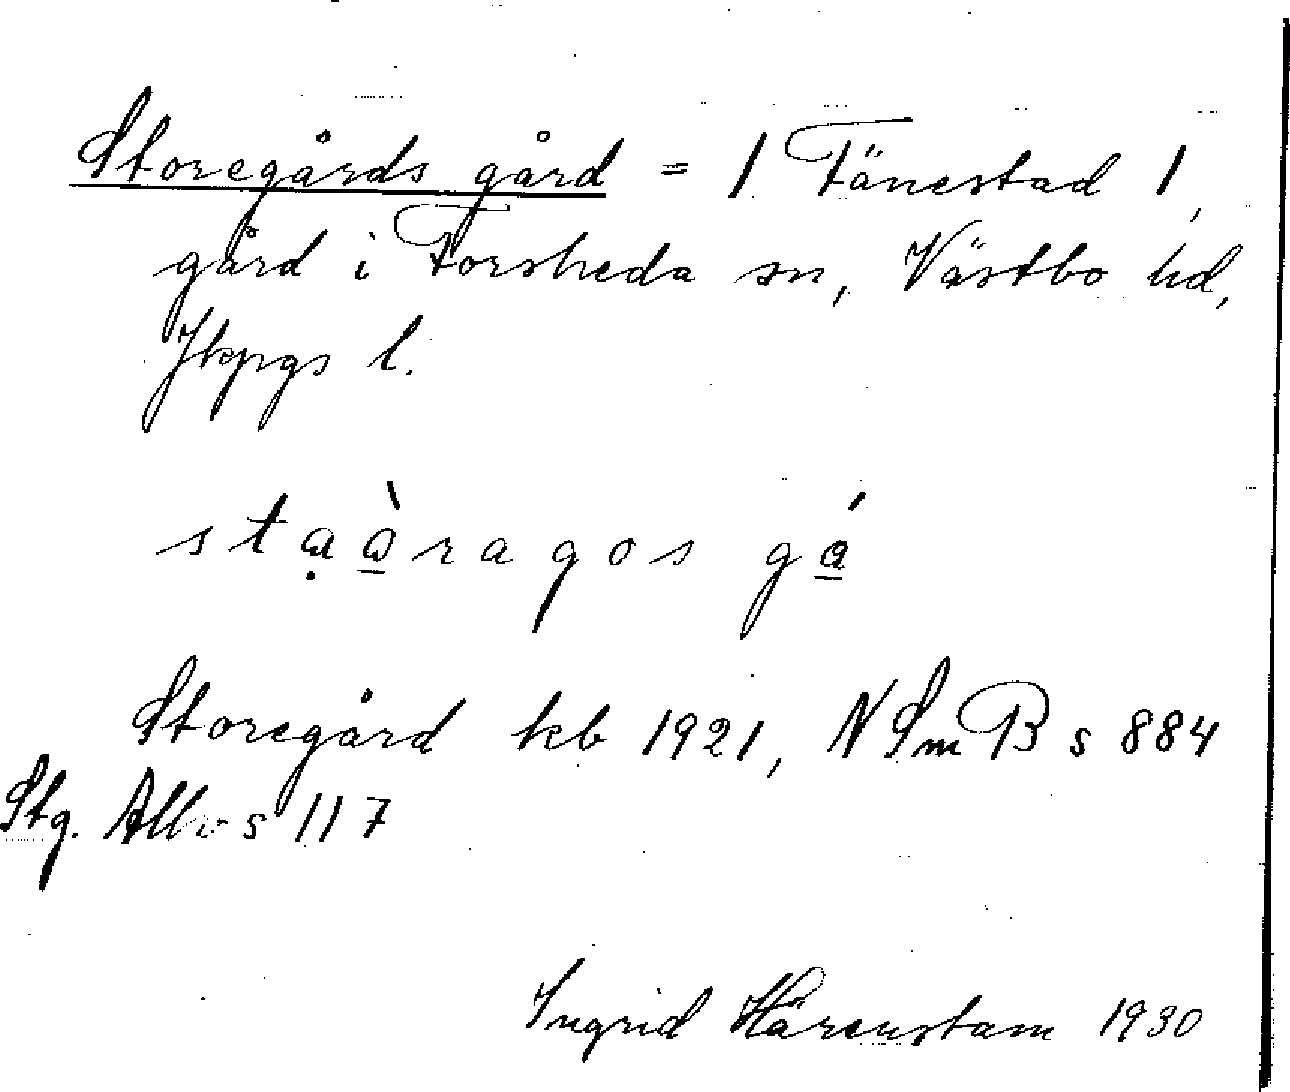 Storegårds gård = 1 Tånestad 1,
gård i Forsheda sn, Västbo hd,
Jkpgs l.
stạà̲ragos gá̲
Storegård kb 1921, NSmB s 884
Stg. Allbo s 117
Ingrid Härenstam 1930